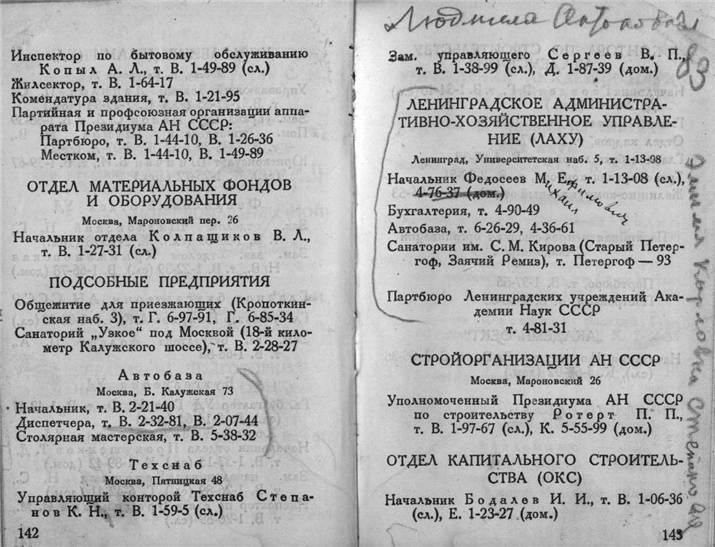 Инспектор по бытовому обслуживанию
Копыл А. Л., т. В. 1-49-89 (сл.)
Жилсектор, т. В. 1-64-17
Комендатура здания, т. В. 1-21-95
Партийная и профсоюзная организации аппа-
рата Президиума АН СССР:
Партбюро, т. В. 1-44-10, В. 1-26-36
Местком, т. В. 1-44-10, В. 1-49-89
ОТДЕЛ МАТЕРИАЛЬНЫХ ФОНДОВ
И ОБОРУДОВАНИЯ
Москва, Мароновский пер. 26
Начальник отдела Колпащиков В. Л.,
т. В. 1-27-31 (сл.)
ПОДСОБНЫЕ ПРЕДПРИЯТИЯ
Общежитие для приезжающих (Кропоткин-
ская наб. 3), т. Г. 6-97-91, Г. 6-85-34
Санаторий „Узкое" под Москвой (18-й кило-
метр Калужского шоссе), т. В. 2-28-27
Автобаза
Москва, Б. Калужская 73
Начальник, т. В. 2-21-40
Диспетчера, т. В. 2-32-81, В. 2-07-44
Столярная мастерская, т. В. 5-38-32
Техснаб
Москва, Пятницкая 48
Управляющий конторой Техснаб Степа-
нов К. Н., т. В. 1-59-5 (сл.)
142
Людмила
83
Зам. управляющего Сергеев В. П.,
т. В. 1-38-99 (сл.), Д. 1-87-39 (дом.)
ЛЕНИНГРАДСКОЕ АДМИНИСТРА-
ТИВНО-ХОЗЯЙСТВЕННОЕ УПРАВЛЕ-
НИЕ (ЛАХУ)
Ленинград, Университетская наб. 5, т. 1-13-08
Начальник Федосеев М. Е., т. 1-13-08 (сл.),
4-76-37 (дом.)
Михаил
Бухгалтерия, т. 4-90-49
Автобаза, т. 6-26-29, 4-36-61
Санатории им. С. М. Кирова (Старый Петер-
гоф, Заячий Ремиз), т. Петергоф — 93
Партбюро Ленинградских учреждений Ака-
демии Наук СССР
т. 4-81-31
СТРОЙОРГАНИЗАЦИИ АН СССР
Москва, Мароновский 26
Уполномоченный Президиума АН СССР
по строительству Ротерт П. П.,
т. В. 1-97-67 (сл.), К. 5-55-99 (дом.)
ОТДЕЛ КАПИТАЛЬНОГО СТРОИТЕЛЬ-
СТВА (ОКС)
Начальник Бодалев И. И., т. В. 1-06-36
(сл.), Е. 1-23-27 (дом.)
143
Эмилия Карловна